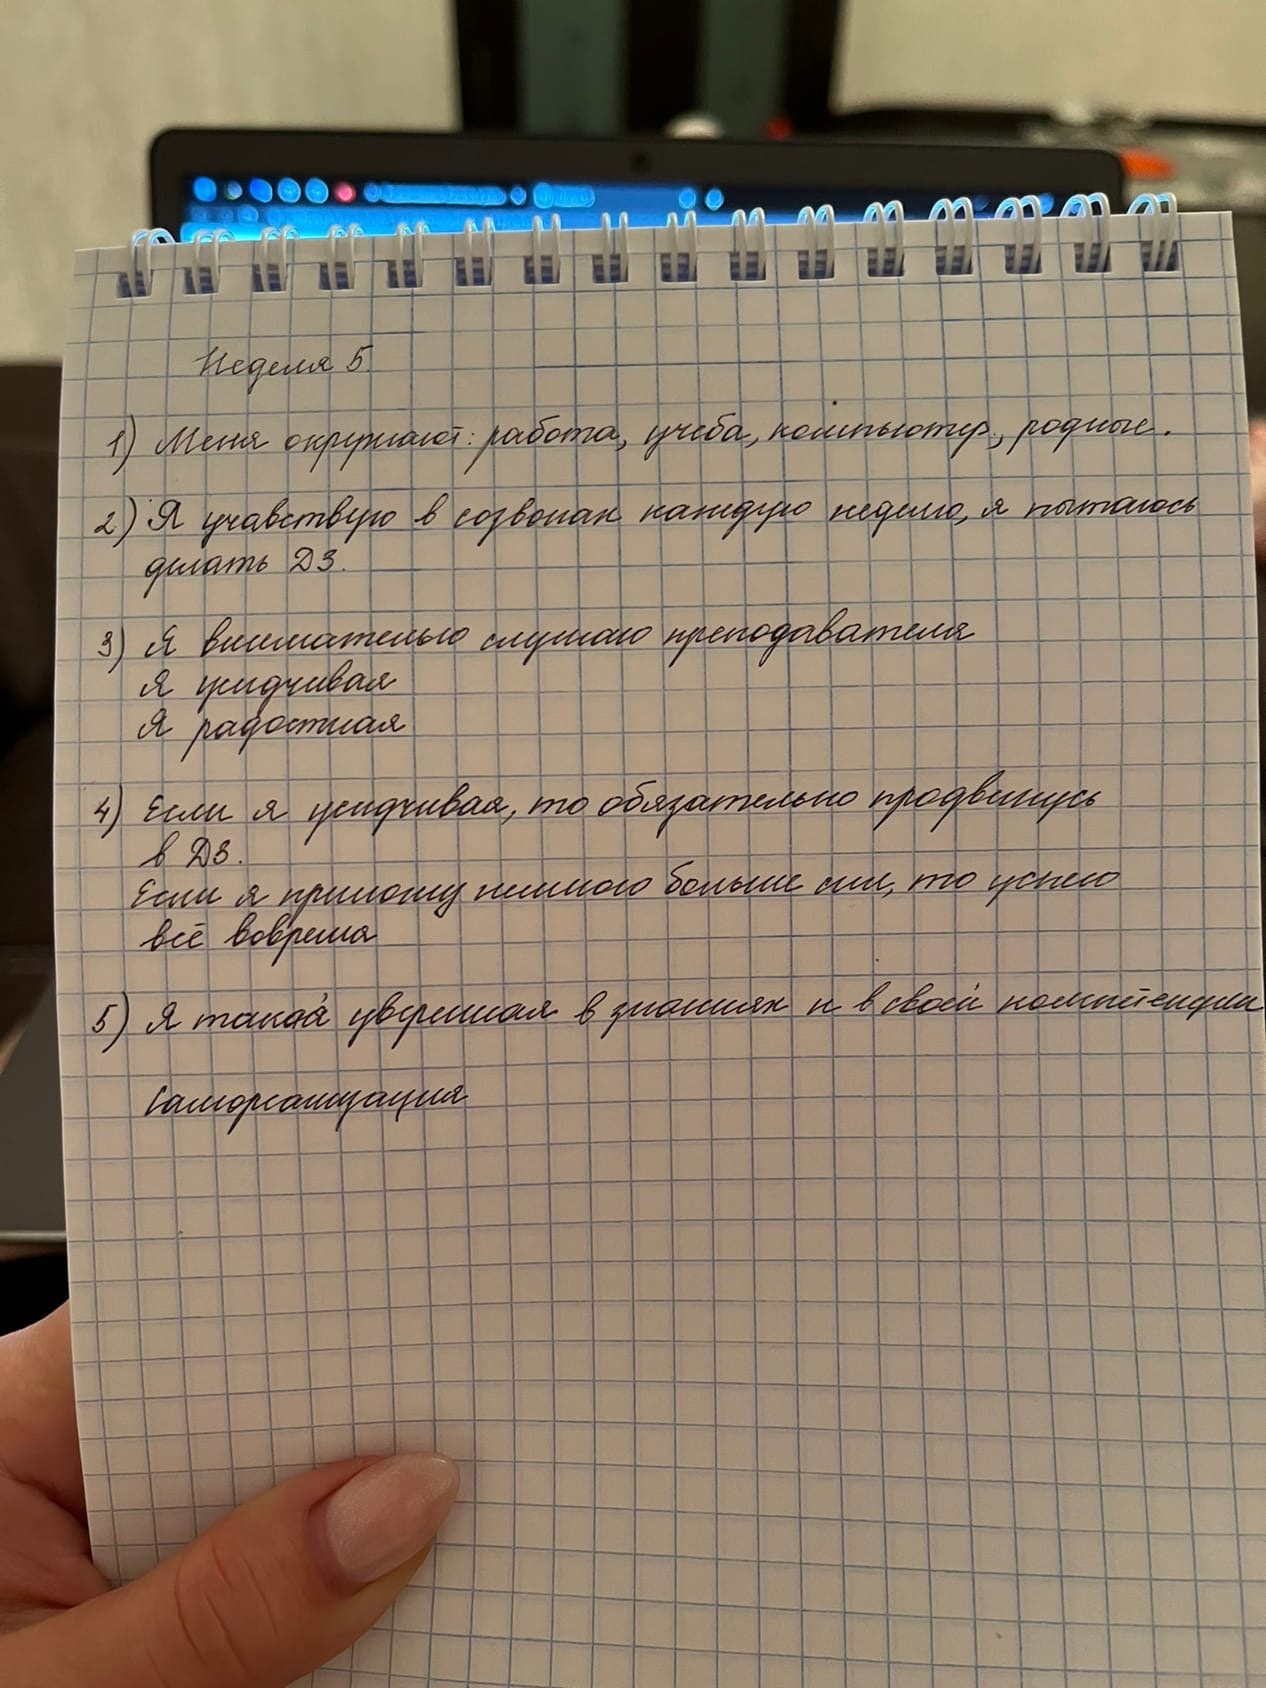 Неделя 5.
1) Меня окружают: работа, учеба, компьютер, родные.
2) Я учавствую в созвонах каждую неделю, я пытаюсь
делать ДЗ.
3) Я внимательно слушаю преподавателя
Я усидчивая
Я радостная
4) Если я усидчивая, то обязательно продвинусь
в ДЗ.
Если я приложу немного больше сил, то успею
всё вовремя
5) Я такая уверенная в знаниях и в своей компетенции
Самореализация